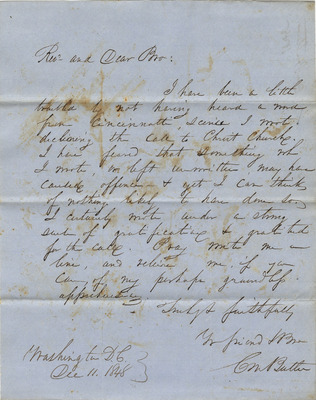 Rev. and Dear Bro:
I have been a little
troubled at not having heard a word
from Cincinnati, since I wrote
declining the call to Christ Church.
I have feared that something wh
I wrote, or left unwritten may have
caused offence & yet I can think
of nothing likely to have done so
I certainly wrote under a strong
sense of gratification & gratitude
for the call. Pray write me a
line, and relieve me, if you
can, of my perhaps groundless
apprehension
Truly & faithfully
Yr friend & Bro
C M Butler
Washington D.C.
Dec 11. 1848